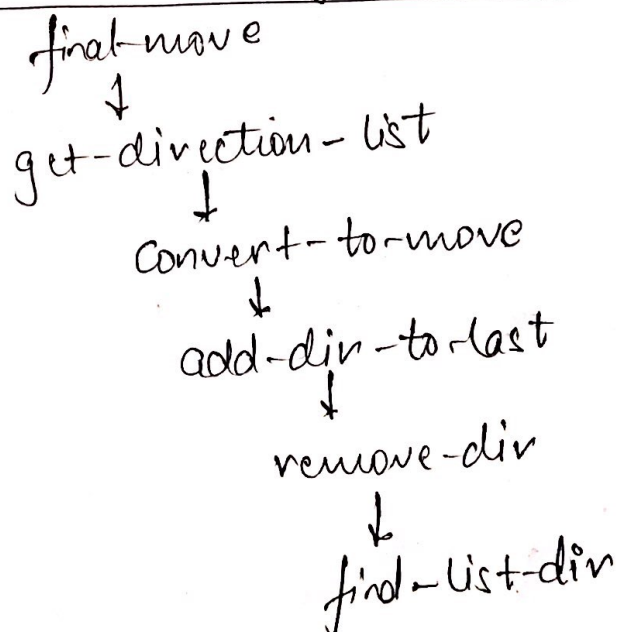 final-move
↓
get-direction-list
↓
convert-to-move
↓
add-dir-to-last
↓
remove-dir
↓
find-list-dir